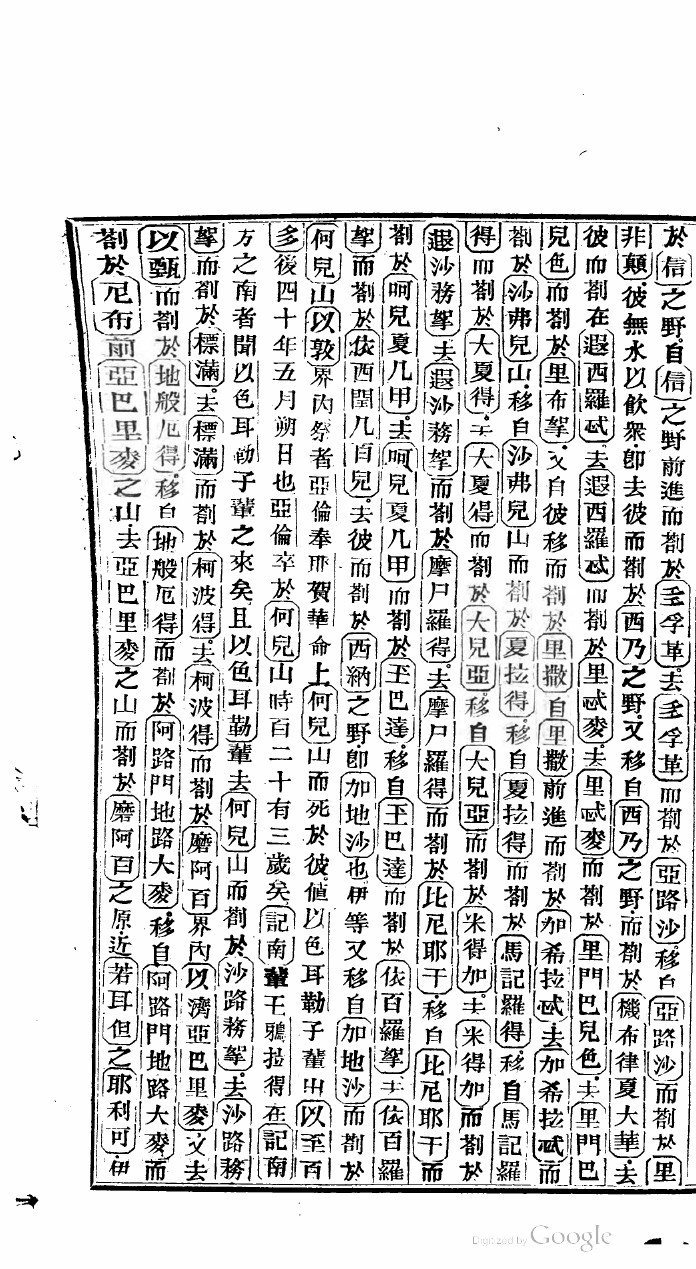 於信之野自信之野前進而劄於孚革去孚革而劄於亞路沙移自亞路沙而劄於里
非顛彼無水以飲衆卽去彼而劄於西乃之野又移自西乃之野而劄於機布律夏大華去
彼而劄在遐西羅忒去遐西羅忒而劄於里忒麥去里忒麥而劄於里門巴兒色去里門巴
兒色而劄於里布拏又自彼移而劄於里撒自里撒前進而劄於加希拉忒去加希拉忒而
劄於沙弗兒山移自沙弗兒山而劄於夏拉得移自夏拉得而劄於馬記羅得移自馬記羅
得而劄於大夏得去大夏得而劄於大兒亞移自大兒亞而劄於米得加去米得加而劄於
遐沙務拏去遐沙務拏而劄於摩尸羅得去摩尸羅得而劄於比尼耶干移自比尼耶干而
劄於呵兒夏几甲去呵兒夏几甲而劄於巴達移自巴達而劄於依百羅拏去依百羅
拏而劄於依西閩几百兒去彼而劄於西納之野卽加地沙也伊等又移自加地沙而劄於
何兒山以敦界內祭者亞倫奉耶賀華命上何兒山而死於彼値以色耳勒子輩出以至百
多後四十年五月朔日也亞倫卒於何兒山時百二十有三歲矣記南輩王鴉拉得在記南
方之南者聞以色耳勒子輩之來矣且以色耳勒輩去何兒山而劄於沙路務拏去沙路務
拏而劄於標滿去標滿而劄於柯波得去柯波得而劄於磨阿百界內以濟亞巴里麥又去
以甄而劄於地般厄得移自地般厄得而劄於阿路門地路大麥移自阿路門地路大麥而
劄於尼布前亞巴里麥之山去亞巴里麥之山而劄於磨阿百之原近若耳但之耶利可伊
Digitized by Google